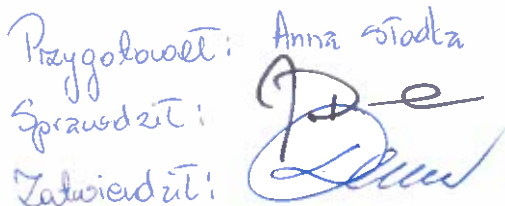 Przygotował: Anna Słodka
Sprawdził:
Zatwierdził: